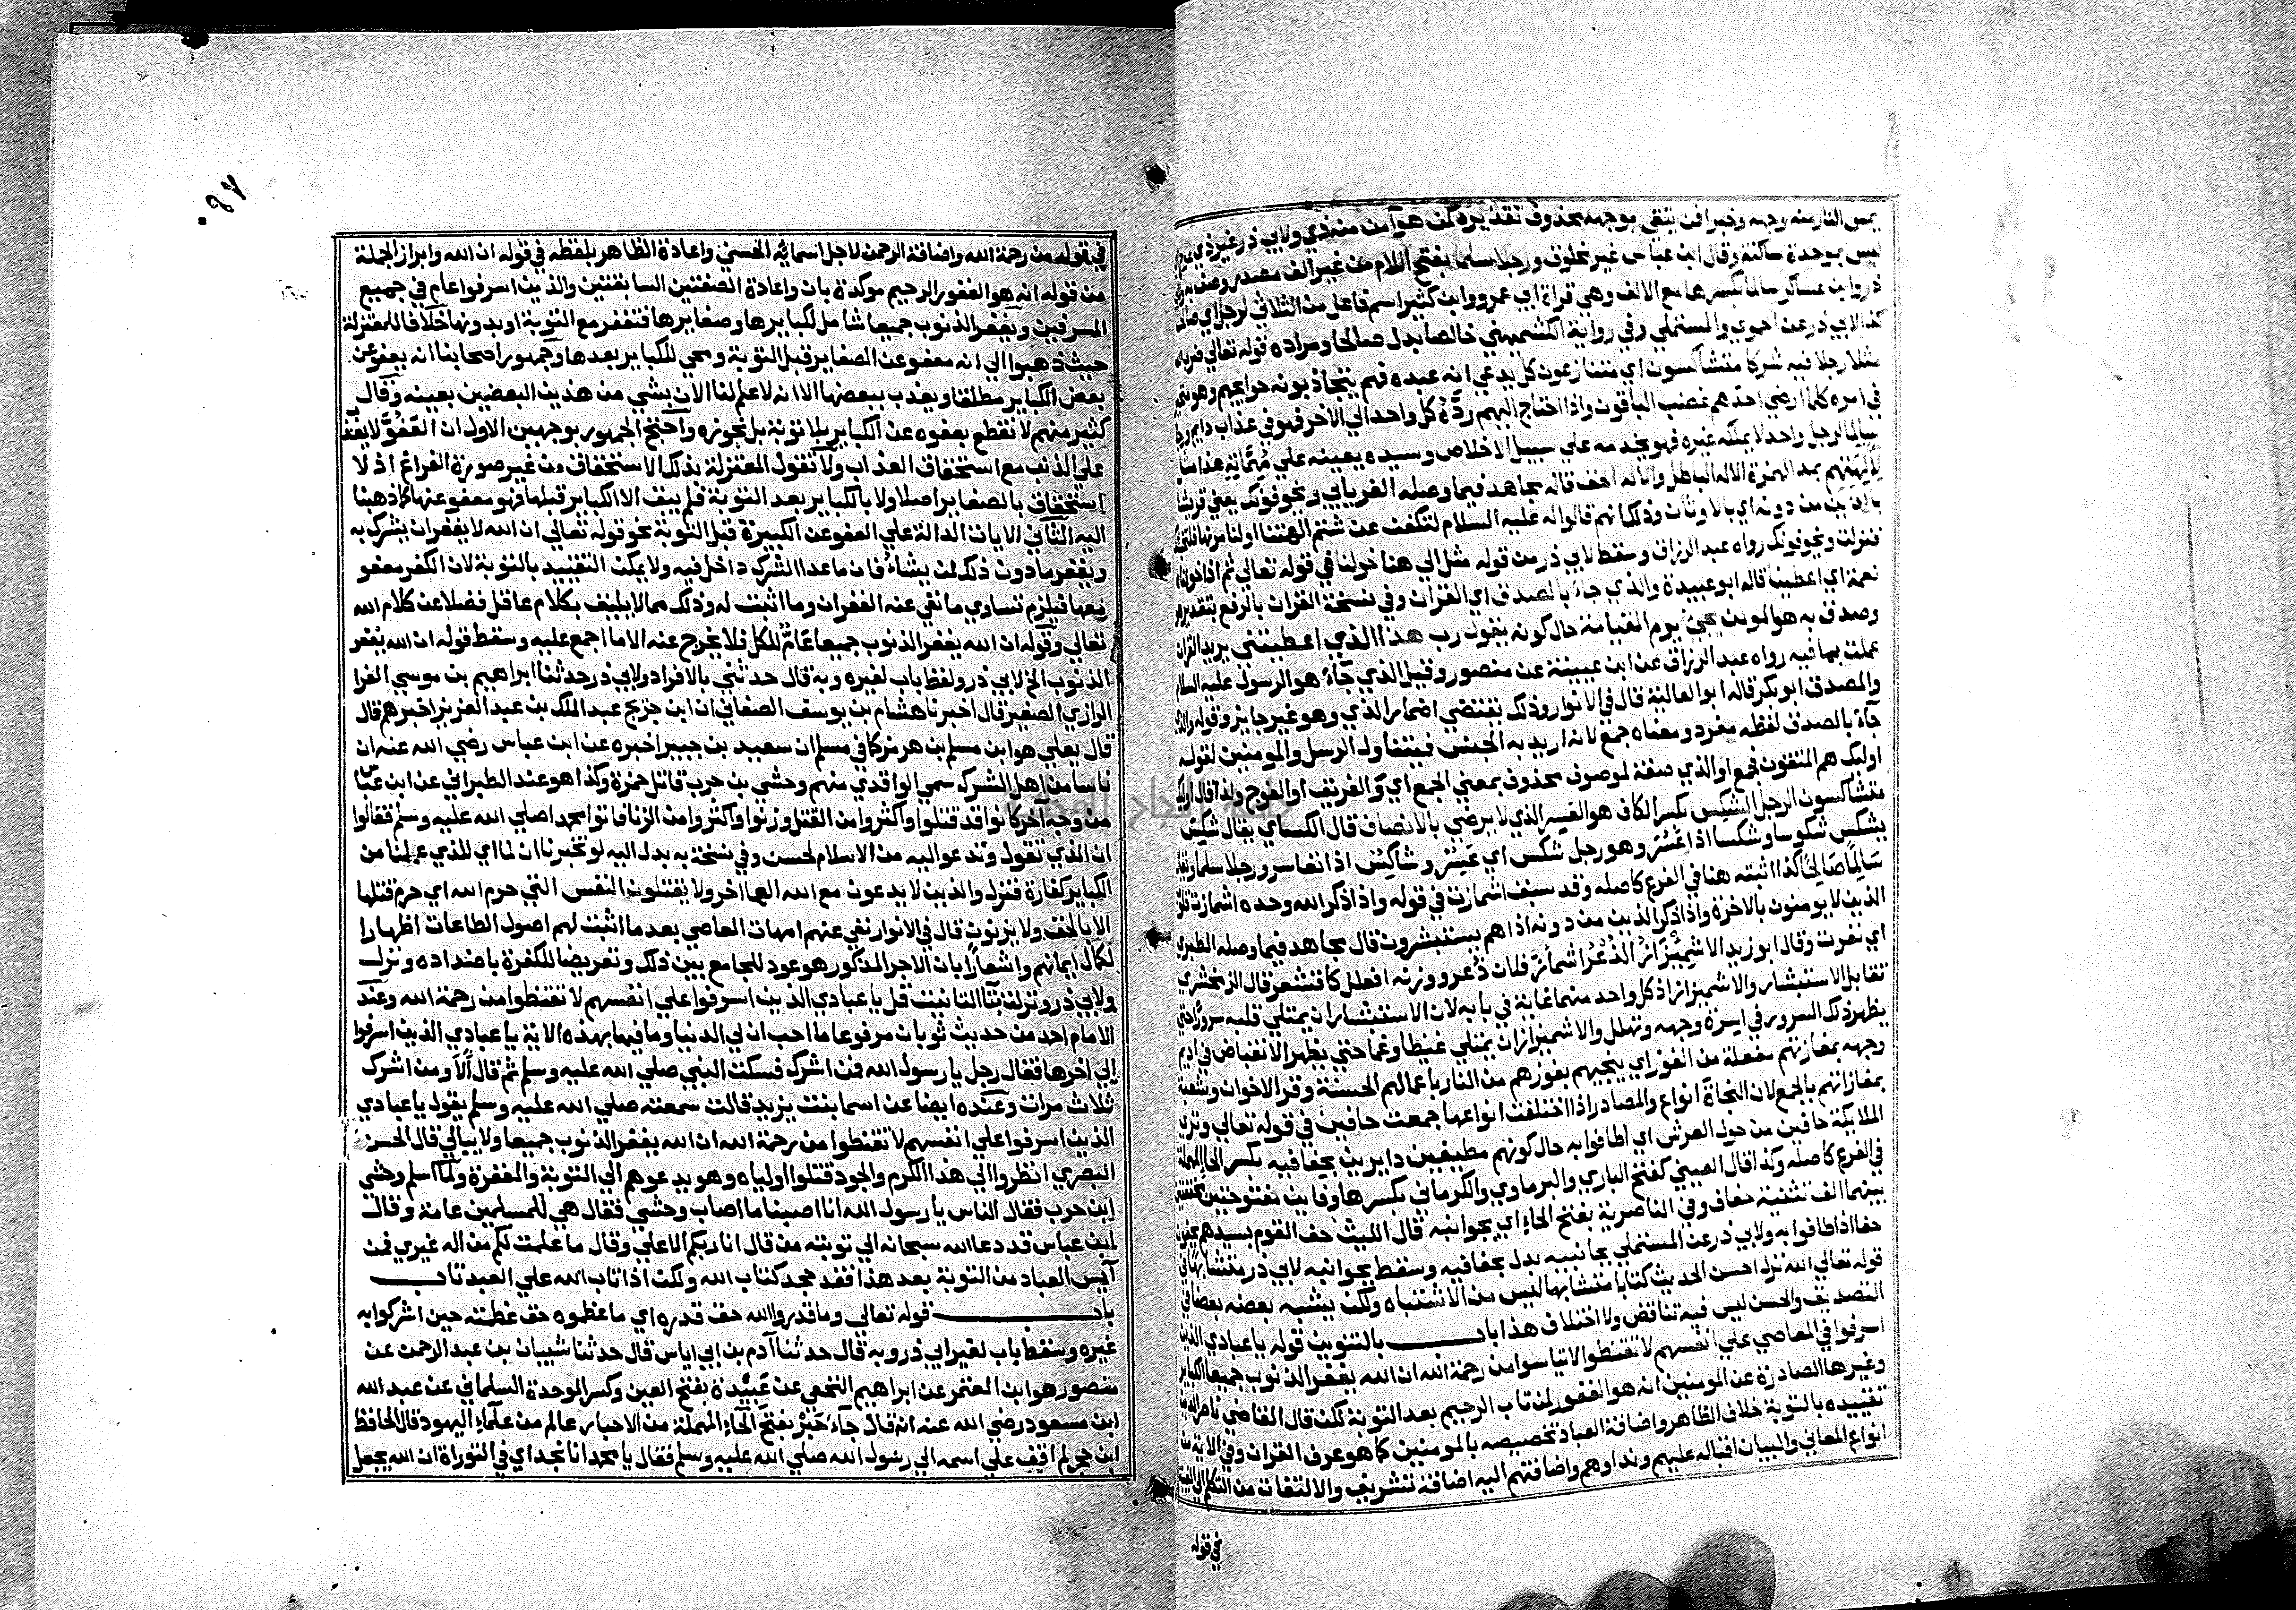 يمس النار منه وجهه وخبر افمن يتقي بوجهه محذوف تقديره كمن هو آمن منه ذي ولابي ذر غير ذي عوج
لبس بموحدة ساكنة وقال ابن عباس غير مخلوق ورجلا سلما بفتح اللام من غير الف مصدر وصف به
ذر وابن عساكر سالما بكسرها مع الالف وهي قراة ابي عمرو وابن كثير اسم فاعل من الثلاثي لرجل اي صالحا
كذا لابي ذر عن الحموي والمستملي وفي رواية الكشميهني خالصا بدل صالحا ومراده قوله تعالي ضرب الله
مثلا رجلا فيه شركا متشاكسون اي متنازعون كل يدعي انه عبده فهم يتجاذبونه حوايجهم وهو متحير
في امره كلما ارضي احدهم غضب الباقون واذا احتاج اليهم رده كل واحد الي الاخر فهو في عذاب دايم ورجلا
سالما لرجل واحد لا يملكه غيره فهو يخدمه علي سبيل الاخلاص وسيده يعينه علي مهماته هذا مثل
لآلهتهم بمد الهمزة الاله الباطل والاله الحق قاله مجاهد فيما وصله الفريابي ويخوفونك يعني قريشا
بالذين من دونه اي بالاوثان وذلك انهم قالوا له عليه السلام لتكفن عن شتم الهتنا او لنامرنها فلتخبلنك
فنزلت ويخوفونك رواه عبد الرزاق وسقط لابي ذر من قوله مثل الي هنا خولنا في قوله تعالي ثم اذا خولناه
نعمة اي اعطينا قاله ابو عبيدة والذي جاء بالصدق اي القران وفي نسخة القران بالرفع بتقدير هو
وصدق به هو المومن يجئ يوم القيامة حال كونه يقول رب هذا الذي اعطيتني يريد القران
عملت بما فيه رواه عبد الرزاق عن ابن عيينة عن منصور وقيل الذي جاء هو الرسول عليه السلام
والمصدق ابو بكر قاله ابو العالية قال في الانوار وذلك يقتضي اضمار الذي وهو غير جايز وقوله والذي
جاء بالصدق لفظه مفرد ومعناه جمع لانه اريد به الجنس فيتناول الرسل والمومنين لقوله
اوليك هم المتقون فجمع او الذي صفة لموصوف محذوف بمعني الجمع اي والفريق او الفوج ولذا قال اوليك
متشاكسون الرجل الشكس بكسر الكاف هو العسر الذي لا يرضي بالانصاف قال الكساي يقال شكس
يشكس شكوسا وشكسا اذا عسر وهو رجل شكس اي عسر وشاكس اذا تعاسر ورجلا سلما ويقال
سالما صالحا كذا اثبته هنا في الفرع كاصله وقد سبق اشمازت في قوله واذا ذكر الله وحده اشمازت قلوب
الذين لا يومنون بالاخرة واذا ذكر الذين من دونه اذا هم يستبشرون قال مجاهد فيما وصله الطبري
اي نفرت وقال ابو زيد الاشميزاز الذعر اشماز فلان ذعر ووزنه افعلل كاقشعر قال الزمخشري
تقابل الاستبشار والاشميزاز اذ كل واحد منهما غاية في بابه لان الاستبشار ان يمتلي قلبه سرورا حتي
يظهر ذلك السرور في اسرة وجهه وتهلل والاشميزاز ان يمتلي غيظا وغما حتي يظهر الانقباض في اديم
وجهه بمفازتهم مفعلة من الفوز اي ينجيهم بفوزهم من النار باعمالهم الحسنة وقرا الاخوان وشعبة
بمفازاتهم بالجمع لان النجاة انواع والمصادر اذا اختلفت انواعها جمعت حافين في قوله تعالي وتري
الملايكة حافين من حول العرش اي اطافوا به حال كونهم مطيفين دايرين بحفافيه بكسر الحا المهملة
في الفرع كاصله وكذا قال العيني كفتح الباري والبرماوي والكرماني بكسرها وفاين مفتوحتين مخففتين
بينهما الف تثنية حفاف وفي الناصرية بفتح الحاء اي بجوانبه قال الليث حف القوم بسيدهم يحفون
حفا اذا طافوا به ولابي ذر عن المستملي بجانبيه بدل بحفافيه وسقط بجوانبه لابي ذر متشابها في
قوله تعالي الله نزل احسن الحديث كتابا متشابها ليس من الاشتباه ولكن يشبه بعضه بعضا في
التصديق والحسن ليس فيه تناقض ولا اختلاف هذا باب بالتنوين قوله يا عبادي الذين
اسرفوا في المعاصي علي انفسهم لا تقنطوا لا تياسوا من رحمة الله ان الله يغفر الذنوب جميعا الكباير
وغيرها الصادرة عن المومنين انه هو الغفور لمن تاب الرحيم بعد التوبة لكن قال القاضي ناصر الدين
تقييده بالتوبة خلاف الظاهر واضافة العباد تخصيصه بالمومنين كما هو عرف القران وفي الاية من
انواع المعاني والبيان اقباله عليهم ونداوهم واضافتهم اليه اضافة تشريف والالتفات من التكلم الي الغيبة
في قوله
٩٧٠
في قوله من رحمة الله واضافة الرحمن لاجل اسمائه الحسني واعادة الظاهر بلفظه في قوله ان الله وابراز الجملة
من قوله انه هو الغفور الرحيم موكدة بان واعادة الصفتين السابقتين والذين اسرفوا عام في جميع
المسرفين ويغفر الذنوب جميعا شامل لكبايرها وصغايرها فتغفر مع التوبة او بدونها خلافا للمعتزلة
حيث ذهبوا الي انه معفو عن الصغاير قبل التوبة ومحي للكباير بعدها وجمهور اصحابنا انه يعفو عن
بعض الكباير مطلقا ويعذب ببعضها الا انه لا علم لنا الان بشي من هذين البعضين بعينه وقال
كثير منهم لا نقطع بعفوه عن الكباير بلا توبة بل نجوزه واحتج الجمهور بوجهين الاول ان العفو لا يعذب
علي الذنب مع استحقاق العذاب ولا تقول المعتزلة بذلك الاستحقاق من غير صورة الفراغ اذ لا
استحقاق بالصغاير اصلا ولا بالكباير بعد التوبة فلم يبق الا الكباير قبلها فهو معفو عنها كما ذهبنا
اليه الثاني الايات الدالة علي العفو عن الكبيرة قبل التوبة نحو قوله تعالي ان الله لا يغفر ان يشرك به
ويغفر ما دون ذلك لمن يشاء فان ما عدا الشرك داخل فيه ولا يمكن التقييد بالتوبة لان الكفر معفو
معها فيلزم تساوي ما نفي عنه الغفران وما اثبت له وذلك مما لا يليق بكلام عاقل فضلا عن كلام الله
تعالي وقوله ان الله يغفر الذنوب جميعا عام للكل فلا يخرج عنه الا ما اجمع عليه وسقط قوله ان الله يغفر
الذنوب الخ لابي ذر ولفظ باب لغيره وبه قال حدثني بالافراد ولابي ذر حدثنا ابراهيم بن موسي الفرا
الرازي الصغير قال اخبرنا هشام بن يوسف الصغاني ان ابن جريج عبد الملك بن عبد العزيز اخبرهم قال
قال يعلي هو ابن مسلم بن هرمز كما في مسلم ان سعيد بن جبير اخبره عن ابن عباس رضي الله عنه ان
ناسا من اهل الشرك سمي الواقدي منهم وحشي بن حرب قاتل حمزة وكذا هو عند الطبراني عن ابن عباس
من وجه آخر كانوا قد قتلوا واكثروا من القتل وزنوا واكثروا من الزنا فاتوا محمدا صلي الله عليه وسلم فقالوا
ان الذي تقول وتدعو اليه من الاسلام لحسن وفي نسخة به بدل اليه لو تخبرنا ان لما اي للذي عملنا من
الكباير كفارة فنزل والذين لا يدعون مع الله الها اخر ولا يقتلون النفس التي حرم الله اي حرم قتلها
الا بالحق ولا يزنون قال في الانوار نفي عنهم امهات المعاصي بعد ما اثبت لهم اصول الطاعات اظهارا
لكمال ايمانهم واشعارا بان الاجر المذكور موعود للجامع بين ذلك وتعريضا للكفرة باضداده ونزل
ولابي ذر ونزلت بتا التانيث قل يا عبادي الذين اسرفوا علي انفسهم لا تقنطوا من رحمة الله وعند
الامام احمد من حديث ثوبان مرفوعا ما احب ان لي الدنيا وما فيها بهذه الاية يا عبادي الذين اسرفوا
الي اخرها فقال رجل يا رسول الله فمن اشرك فسكت النبي صلي الله عليه وسلم ثم قال الا ومن اشرك
ثلاث مرات وعنده ايضا عن اسما بنت يزيد قالت سمعته صلي الله عليه وسلم يقول يا عبادي
الذين اسرفوا علي انفسهم لا تقنطوا من رحمة الله ان الله يغفر الذنوب جميعا ولا يبالي قال الحسن
البصري انظروا الي هذا الكرم والجود قتلوا اولياه وهو يدعوهم الي التوبة والمغفرة ولما اسلم وحشي
ابن حرب فقال الناس يا رسول الله انا اصبنا ما اصاب وحشي فقال هي للمسلمين عامة وقال
ابن عباس قد دعا الله سبحانه الي توبته من قال انا ربكم الاعلي وقال ما علمت لكم من اله غيري فمن
آيس العباد من التوبة بعد هذا فقد جحد كتاب الله ولكن اذا تاب الله علي العبد تاب
باب قوله تعالي وما قدروا الله حق قدره اي ما عظموه حق عظمته حين اشركوا به
غيره وسقط باب لغير ابي ذر وبه قال حدثنا آدم بن ابي اياس قال حدثنا شيبان بن عبد الرحمن عن
منصور هو ابن المعتمر عن ابراهيم النخعي عن عبيدة بفتح العين وكسر الموحدة السلماني عن عبد الله
ابن مسعود رضي الله عنه انه قال جاء حبر بفتح الحاء المهملة من الاحبار عالم من علماء اليهود قال الحافظ
ابن حجر لم اقف علي اسمه الي رسول الله صلي الله عليه وسلم فقال يا محمد انا نجد اي في التوراة ان الله يجعل